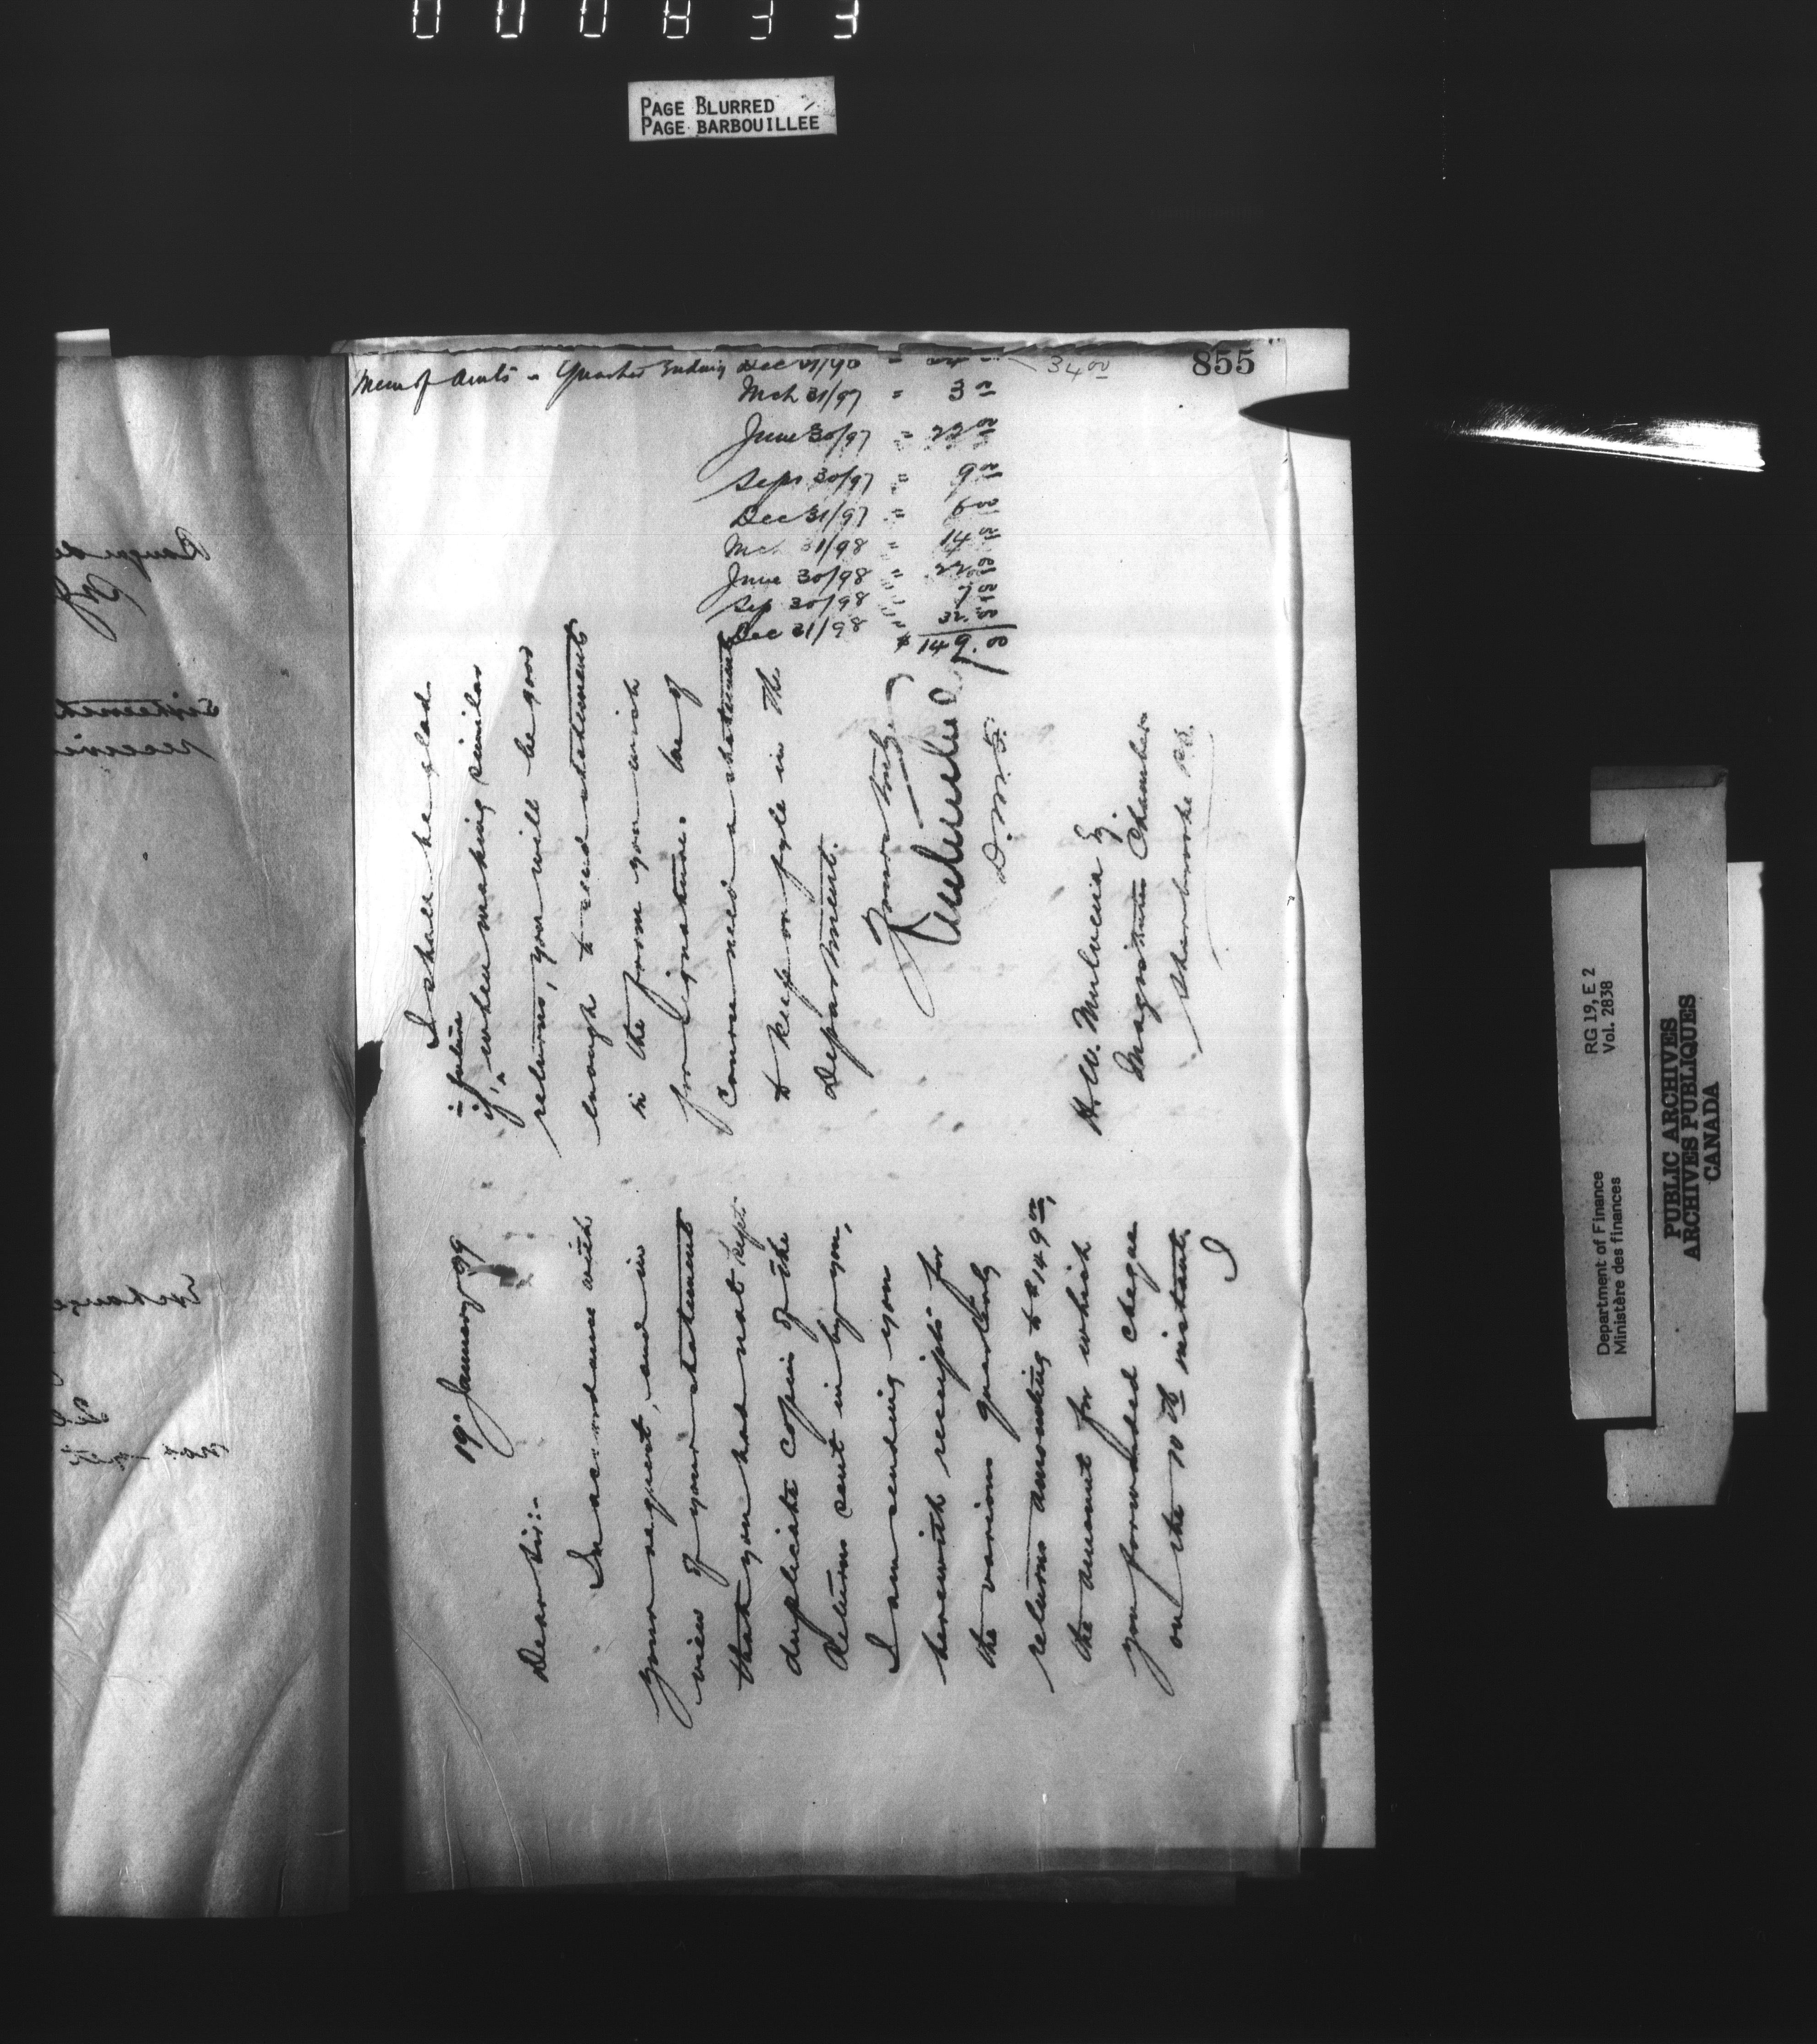 000833
PAGE BLURRED
PAGE BARBOUILLÉE
855
19" January 99
Dear Sir:-
In accordance with
your request, and in
view of your statement
that you had not kept
duplicate copies of the
Returns sent in by you,
I am sending you
herewith receipts for
the various quarterly
returns amounting to $149.00,
the amount for which
you forwarded cheque
on the 10th instant.
I
I shall be glad
in future
if, when making similar
returns, you will be good
enough to send statements
in the form you wish
for signature. We of
course need a statement
to keep on fyle in the
Department.
Yours truly
D.M.F.
H.W. Mulvena Esq.
Magistrates Chambers
Sherbrooke P.Q.
Mem of Amts - Quarter Ending Dec 31/96 = 34.00
Mch 31/97 = 3.00
June 30/97 = 22.00
Sept 30/97 = 9.00
Dec 31/97 = 6.00
Mch 31/98 = 14.00
June 30/98 = 22.00
Sep 30/98 " 7.00
Dec 31/98 = 32.00
$149.00
Department of Finance RG 19, E 2
Ministère des finances Vol. 2838
PUBLIC ARCHIVES
ARCHIVES PUBLIQUES
CANADA